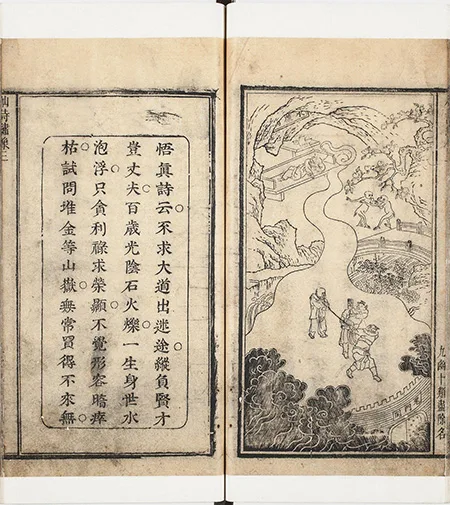 九幽十類盡除名
鬼門關
悟眞詩云不求大道出迷途縱負賢才
豈丈夫百歲光陰石火爍一生身世水
泡浮只貪利祿求榮顯不覺形容暗瘁
枯試問堆金等山嶽無常買得不來無